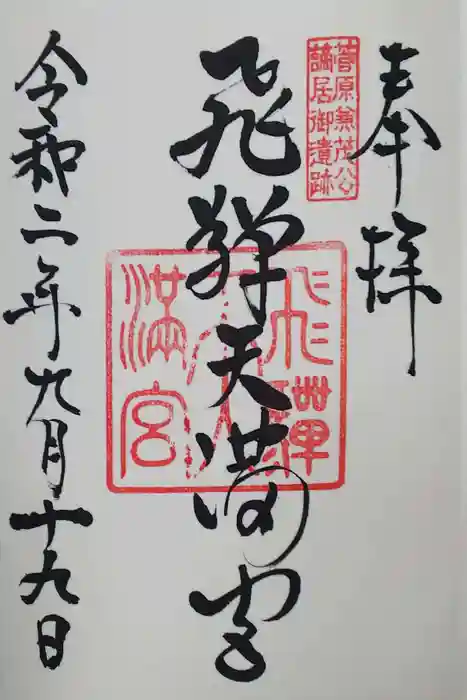 奉拝
菅原兼茂公
謫居御遺跡
飛騨天満宮
飛騨天満宮
令和二年九月十九日